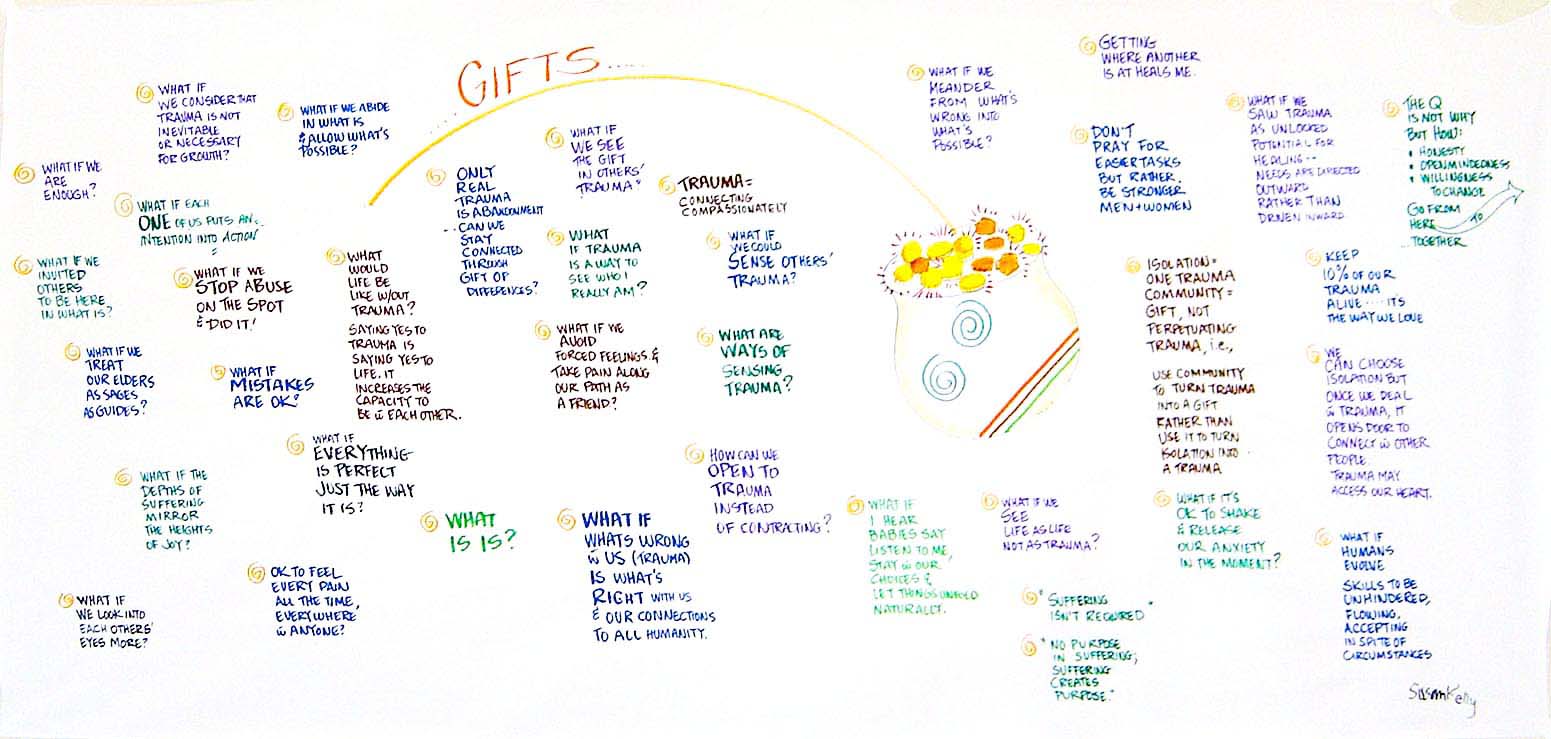 GIFTS.....
WHAT IF
WE CONSIDER THAT
TRAUMA IS NOT
INEVITABLE
OR NECESSARY
FOR GROWTH?
WHAT IF WE ABIDE
IN WHAT IS
& ALLOW WHAT'S
POSSIBLE?
WHAT IF WE
ARE
ENOUGH?
WHAT IF EACH
ONE OF US PUTS AN
INTENTION INTO ACTION
WHAT IF WE
INVITED
OTHERS
TO BE HERE
IN WHAT IS?
WHAT IF WE
STOP ABUSE
ON THE SPOT
& "DID IT!"
WHAT
WOULD
LIFE BE
LIKE W/OUT
TRAUMA?
SAYING YES TO
TRAUMA IS
SAYING YES TO
LIFE. IT
INCREASES THE
CAPACITY TO
BE w̄ EACH OTHER.
WHAT IF WE
TREAT
OUR ELDERS
AS SAGES
AS GUIDES?
WHAT IF
MISTAKES
ARE OK?
WHAT IF
EVERYTHING
IS PERFECT
JUST THE WAY
IT IS?
WHAT IF THE
DEPTHS OF
SUFFERING
MIRROR
THE HEIGHTS
OF JOY?
WHAT IF
WE LOOK INTO
EACH OTHERS'
EYES MORE?
OK TO FEEL
EVERY PAIN
ALL THE TIME,
EVERYWHERE
w̄ ANYONE?
ONLY
REAL
TRAUMA
IS ABANDONMENT
... CAN WE
STAY
CONNECTED
THROUGH
GIFT OF
DIFFERENCES?
WHAT IF
WE SEE
THE GIFT
IN OTHERS'
TRAUMA?
TRAUMA =
CONNECTING
COMPASSIONATELY
WHAT
IF TRAUMA
IS A WAY TO
SEE WHO I
REALLY AM?
WHAT IF
WE COULD
SENSE OTHERS'
TRAUMA?
WHAT IF WE
AVOID
FORCED FEELINGS &
TAKE PAIN ALONG
OUR PATH AS
A FRIEND?
WHAT ARE
WAYS OF
SENSING
TRAUMA?
WHAT
IS IS?
WHAT IF
WHATS WRONG
w̄ US (TRAUMA)
IS WHAT'S
RIGHT WITH US
& OUR CONNECTIONS
TO ALL HUMANITY.
HOW CAN WE
OPEN TO
TRAUMA
INSTEAD
OF CONTRACTING?
WHAT IF WE
MEANDER
FROM WHAT'S
WRONG INTO
WHAT'S
POSSIBLE?
GETTING
WHERE ANOTHER
IS AT HEALS ME.
DON'T
PRAY FOR
EASIER TASKS
BUT RATHER,
BE STRONGER
MEN + WOMEN
WHAT IF WE
SAW TRAUMA
AS UNLOCKED
POTENTIAL FOR
HEALING --
NEEDS ARE DIRECTED
OUTWARD
RATHER THAN
DRIVEN INWARD.
THE Q
IS NOT WHY
BUT HOW:
• HONESTY
• OPENMINDEDNESS
• WILLINGNESS
TO CHANGE
GO FROM
HERE TO
...TOGETHER
ISOLATION =
ONE TRAUMA
COMMUNITY =
GIFT, NOT
PERPETUATING
TRAUMA, i.e.,
USE COMMUNITY
TO TURN TRAUMA
INTO A GIFT
RATHER THAN
USE IT TO TURN
ISOLATION INTO
A TRAUMA
KEEP
10% OF OUR
TRAUMA
ALIVE .... ITS
THE WAY WE LOVE
WE
CAN CHOOSE
ISOLATION BUT
ONCE WE DEAL
w̄ TRAUMA, IT
OPENS DOOR TO
CONNECT w̄ OTHER
PEOPLE.
TRAUMA MAY
ACCESS OUR HEART.
WHAT IF
I HEAR
BABIES SAY
LISTEN TO ME,
STAY w̄ OUR
CHOICES &
LET THINGS UNFOLD
NATURALLY.
WHAT IF WE
SEE
LIFE AS LIFE
NOT AS TRAUMA?
WHAT IF IT'S
OK TO SHAKE
& RELEASE
OUR ANXIETY
IN THE MOMENT?
"SUFFERING
ISN'T REQUIRED"
"NO PURPOSE
IN SUFFERING;
SUFFERING
CREATES
PURPOSE."
WHAT IF
HUMANS
EVOLVE
SKILLS TO BE
UNHINDERED,
FLOWING,
ACCEPTING
IN SPITE OF
CIRCUMSTANCES
Susan Kelly